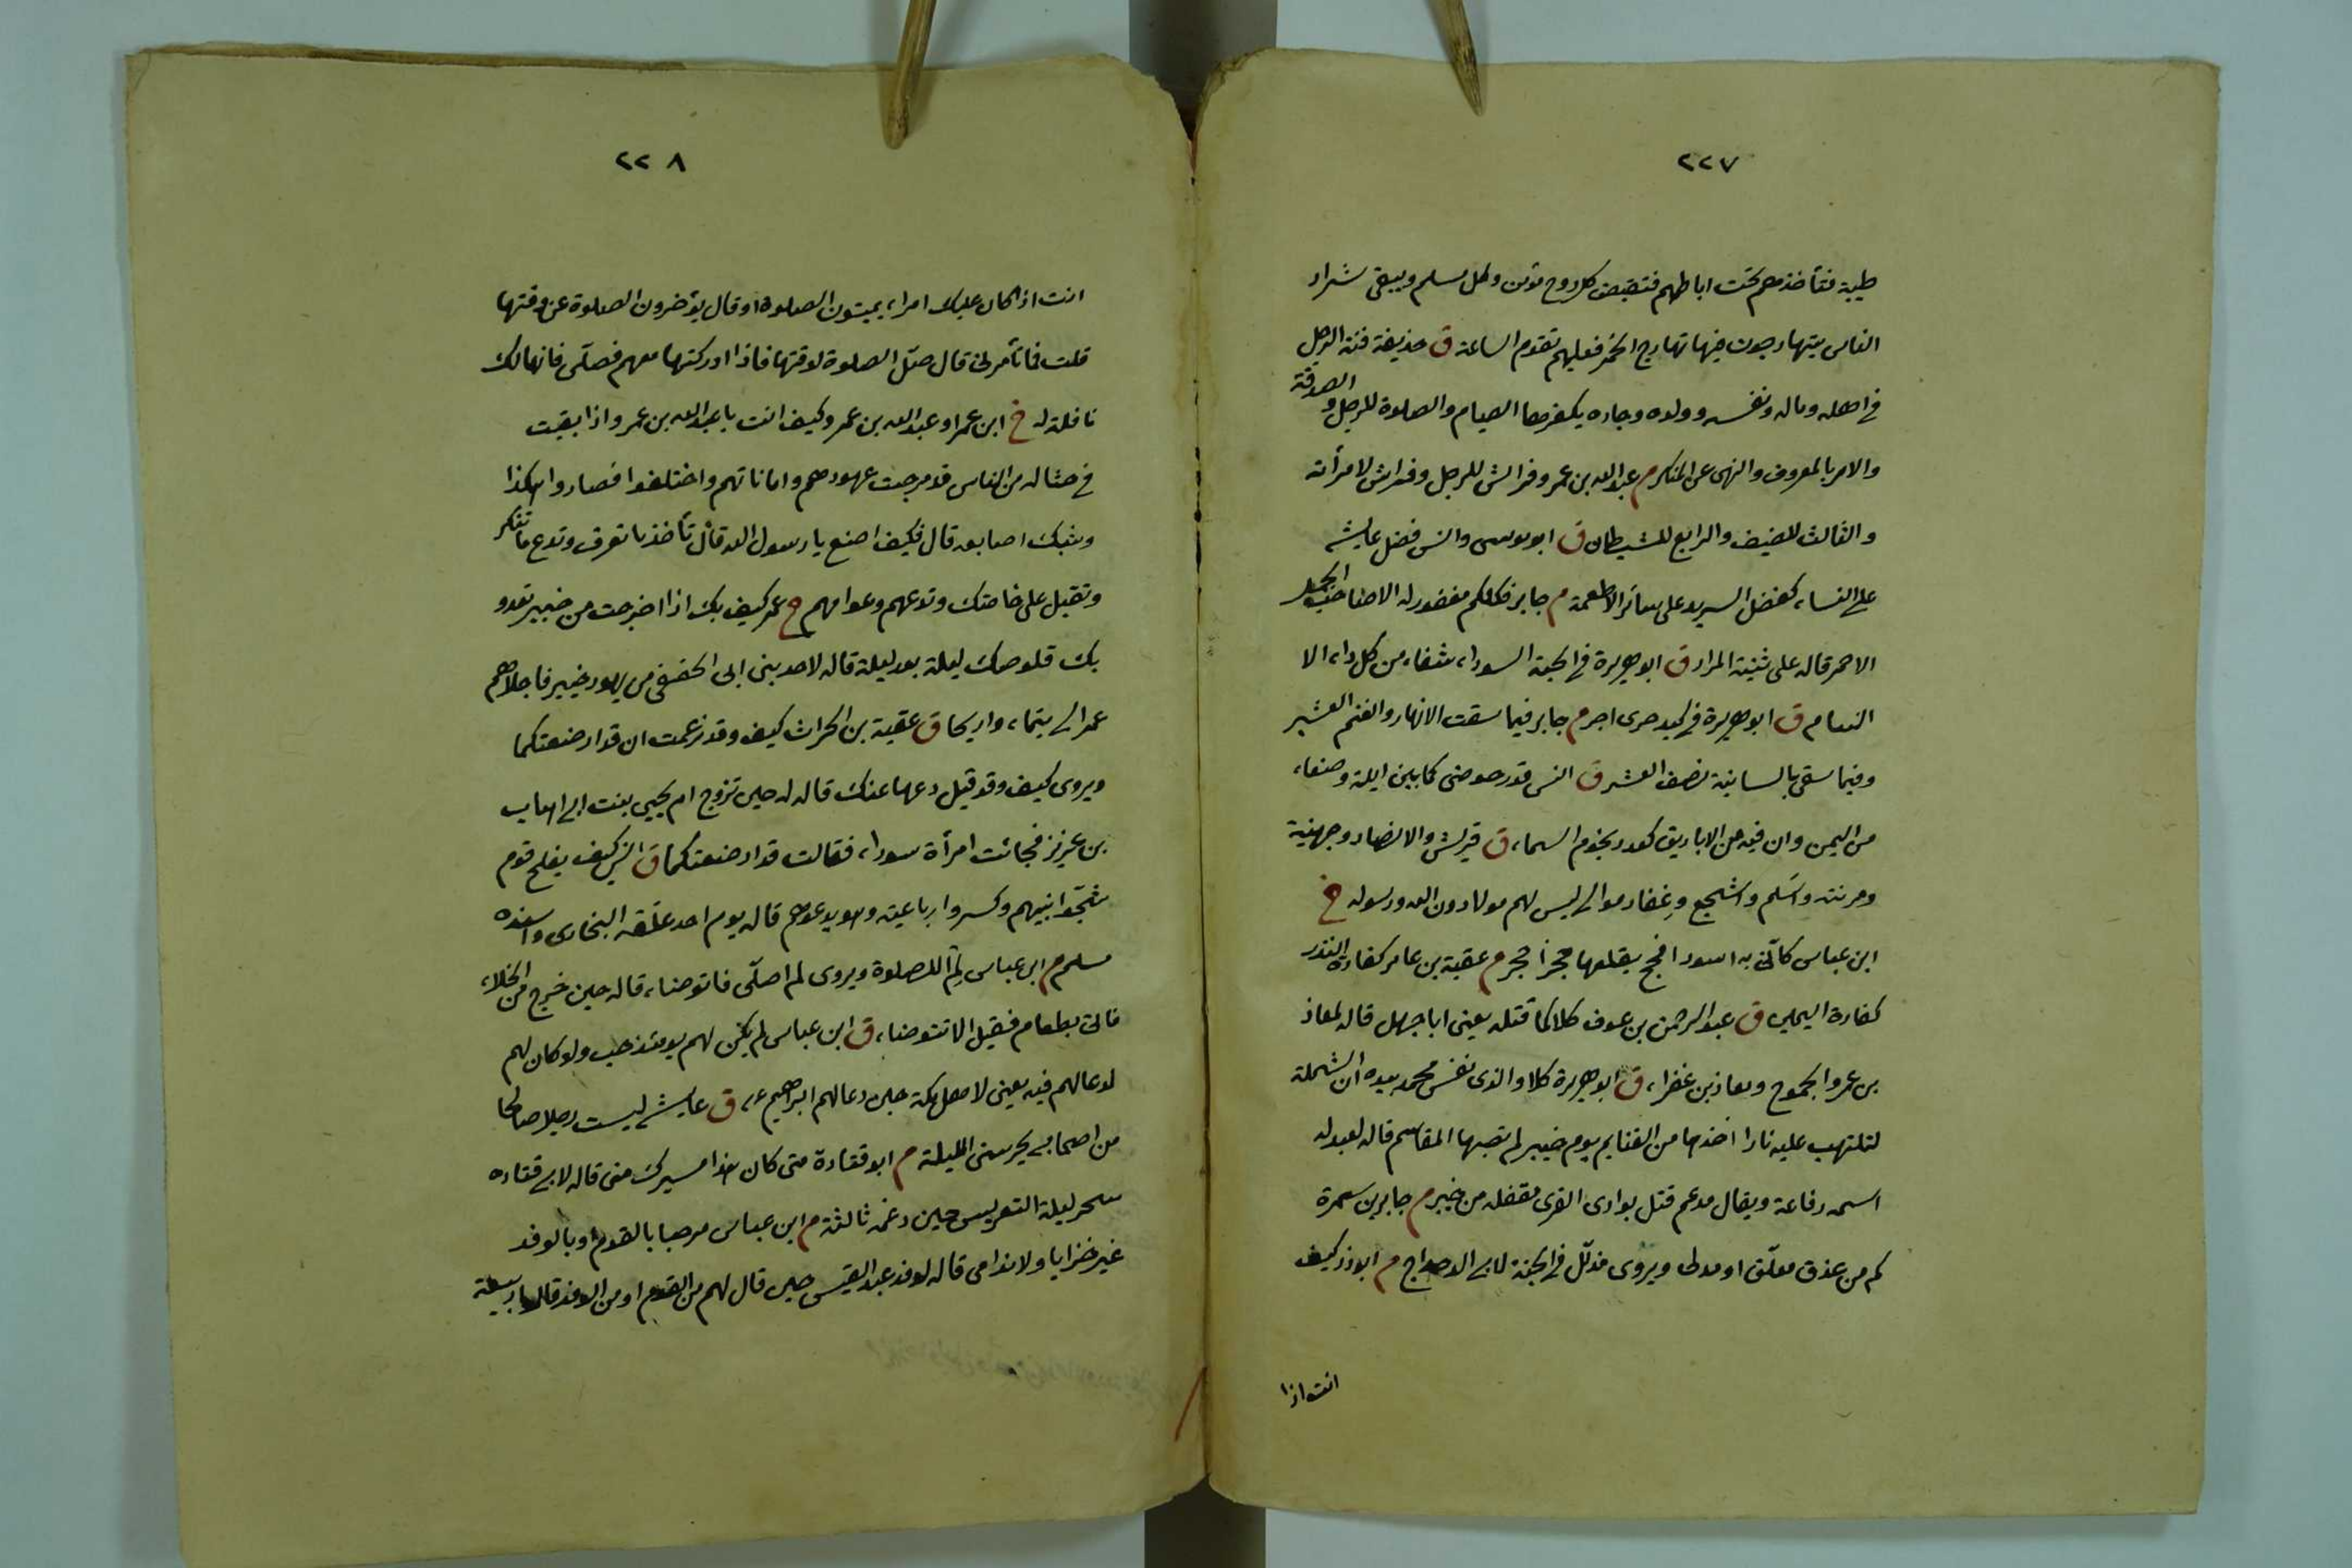 ٢٢٧
طيبة فتأخذهم تحت اباطهم فتقبض كل روح مؤمن وكل مسلم ويبقى شرار
الناس يتهارجون فيها تهارج الحمر فعليهم تقوم الساعة ق حذيفة فتنة الرجل
فى اهله وماله ونفسه وولده وجاره يكفرها الصيام والصلوة للرجل والصدقة
والامر بالمعروف والنهى عن المنكر م عبدالله بن عمر وفراش للرجل وفراش لامرأته
والثالث للضيف والرابع للشيطان ق ابو موسى وانس فضل عايشه
على النساء كفضل السريد على سائر الاطعمة م جابر فكلكم مغفور له الا صاحب الجمل
الاحمر قاله على ثنية المرار ق ابو هريرة فى الحبة السوداء شفاء من كل داء الا
السام ق ابو هريرة فى كبد حرى اجر م جابر فيما سقت الانهار والغيم العشير
وفيما سقى بالسانية نصف العشر ق انس قدر حوضى كما بين ايلة وصنعاء
من اليمن وان فيه من الاباريق كعدد نجوم السماء ق قريش والانصار وجهينة
ومزينة واسلم واشجع وغفار موالى ليس لهم مولا دون الله ورسوله خ
ابن عباس كأنى به اسود افحج يقلعها حجراً حجر م عقبة بن عامر كفارة النذر
كفارة اليمين ق عبد الرحمن بن عوف كلاكما قتله يعنى ابا جهل قاله لمعاذ
بن عمرو الجموح ومعاذ بن عفراء ق ابو هريرة كلا والذى نفس محمد بيده ان الشملة
لتلتهب عليه نارا اخذها من الغنايم يوم خيبر لم تصبها المقاسم قاله لعبد له
اسمه رفاعة ويقال مدعم قتل بوادى القرى مقفله من خيبر م جابر بن سمرة
كم من عذق معلّق او مدلى ويروى مذلّل فى الجنة لابى الدحداح م ابوذر كيف
انت اذا
٢٢٨
انت اذا كان عليك امراء يميتون الصلوة او قال يؤخرون الصلوة عن وقتها
قلت فما تأمرنى قال صلّ الصلوة لوقتها فاذا ادركتها معهم فصلّى فانها لك
نافلة له خ ابن عمر او عبدالله بن عمر وكيف انت يا عبدالله بن عمر واذا بقيت
فى حثاله من الناس قد مرجت عهودهم واماناتهم واختلفوا فصاروا هكذا
وشبك اصابعه قال فكيف اصنع يا رسول الله قال تأخذ ما تعرف وتدع ما تنكر
وتقبل على خاصتك وتدعهم وعوامهم خ عمر كيف بك اذا اخرجت من خيبر تعدو
بك قلوصك ليلة بعد ليلة قاله لاحد بنى ابى الحقيق من يهود خيبر فاجلاهم
عمر الى تيماء واريحا ق عقبة بن الحراث كيف وقد زعمت ان قد ارضعتكما
ويروى كيف وقد قيل دعها عنك قاله له حين تزوج ام يحيى بنت ابى اهاب
بن عزيز فجائت امرأة سوداء فقالت قد ارضعتكما ق انس كيف يفلح قوم
شجّوا نبيهم وكسروا رباعيته وهو يدعوهم قاله يوم احد علّقه البخارى واسنده
مسلم م ابن عباس لِمَ أللصلوة ويروى لم اصلّى فاتوضاء قاله حين خرج من الخلاء
فاتى بطعام فقيل الا تتوضاء ق ابن عباس لم يكن لهم يومئذ حب ولو كان لهم
لدعا لهم فيه يعنى لاهل مكة حين دعا لهم ابراهيم ع ق عايشه ليست رجلا صالحا
من اصحابى يحرسنى الليلة م ابو قتادة متى كان هذا مسيرك منى قاله لابى قتاده
سحر ليلة التعريس حين دعمه ثالثة م ابن عباس مرحبا بالقوم او بالوفد
غير خزايا ولا ندامى قاله لوفد عبد القيس حين قال لهم من القوم او من الوفد قالوا ربيعة